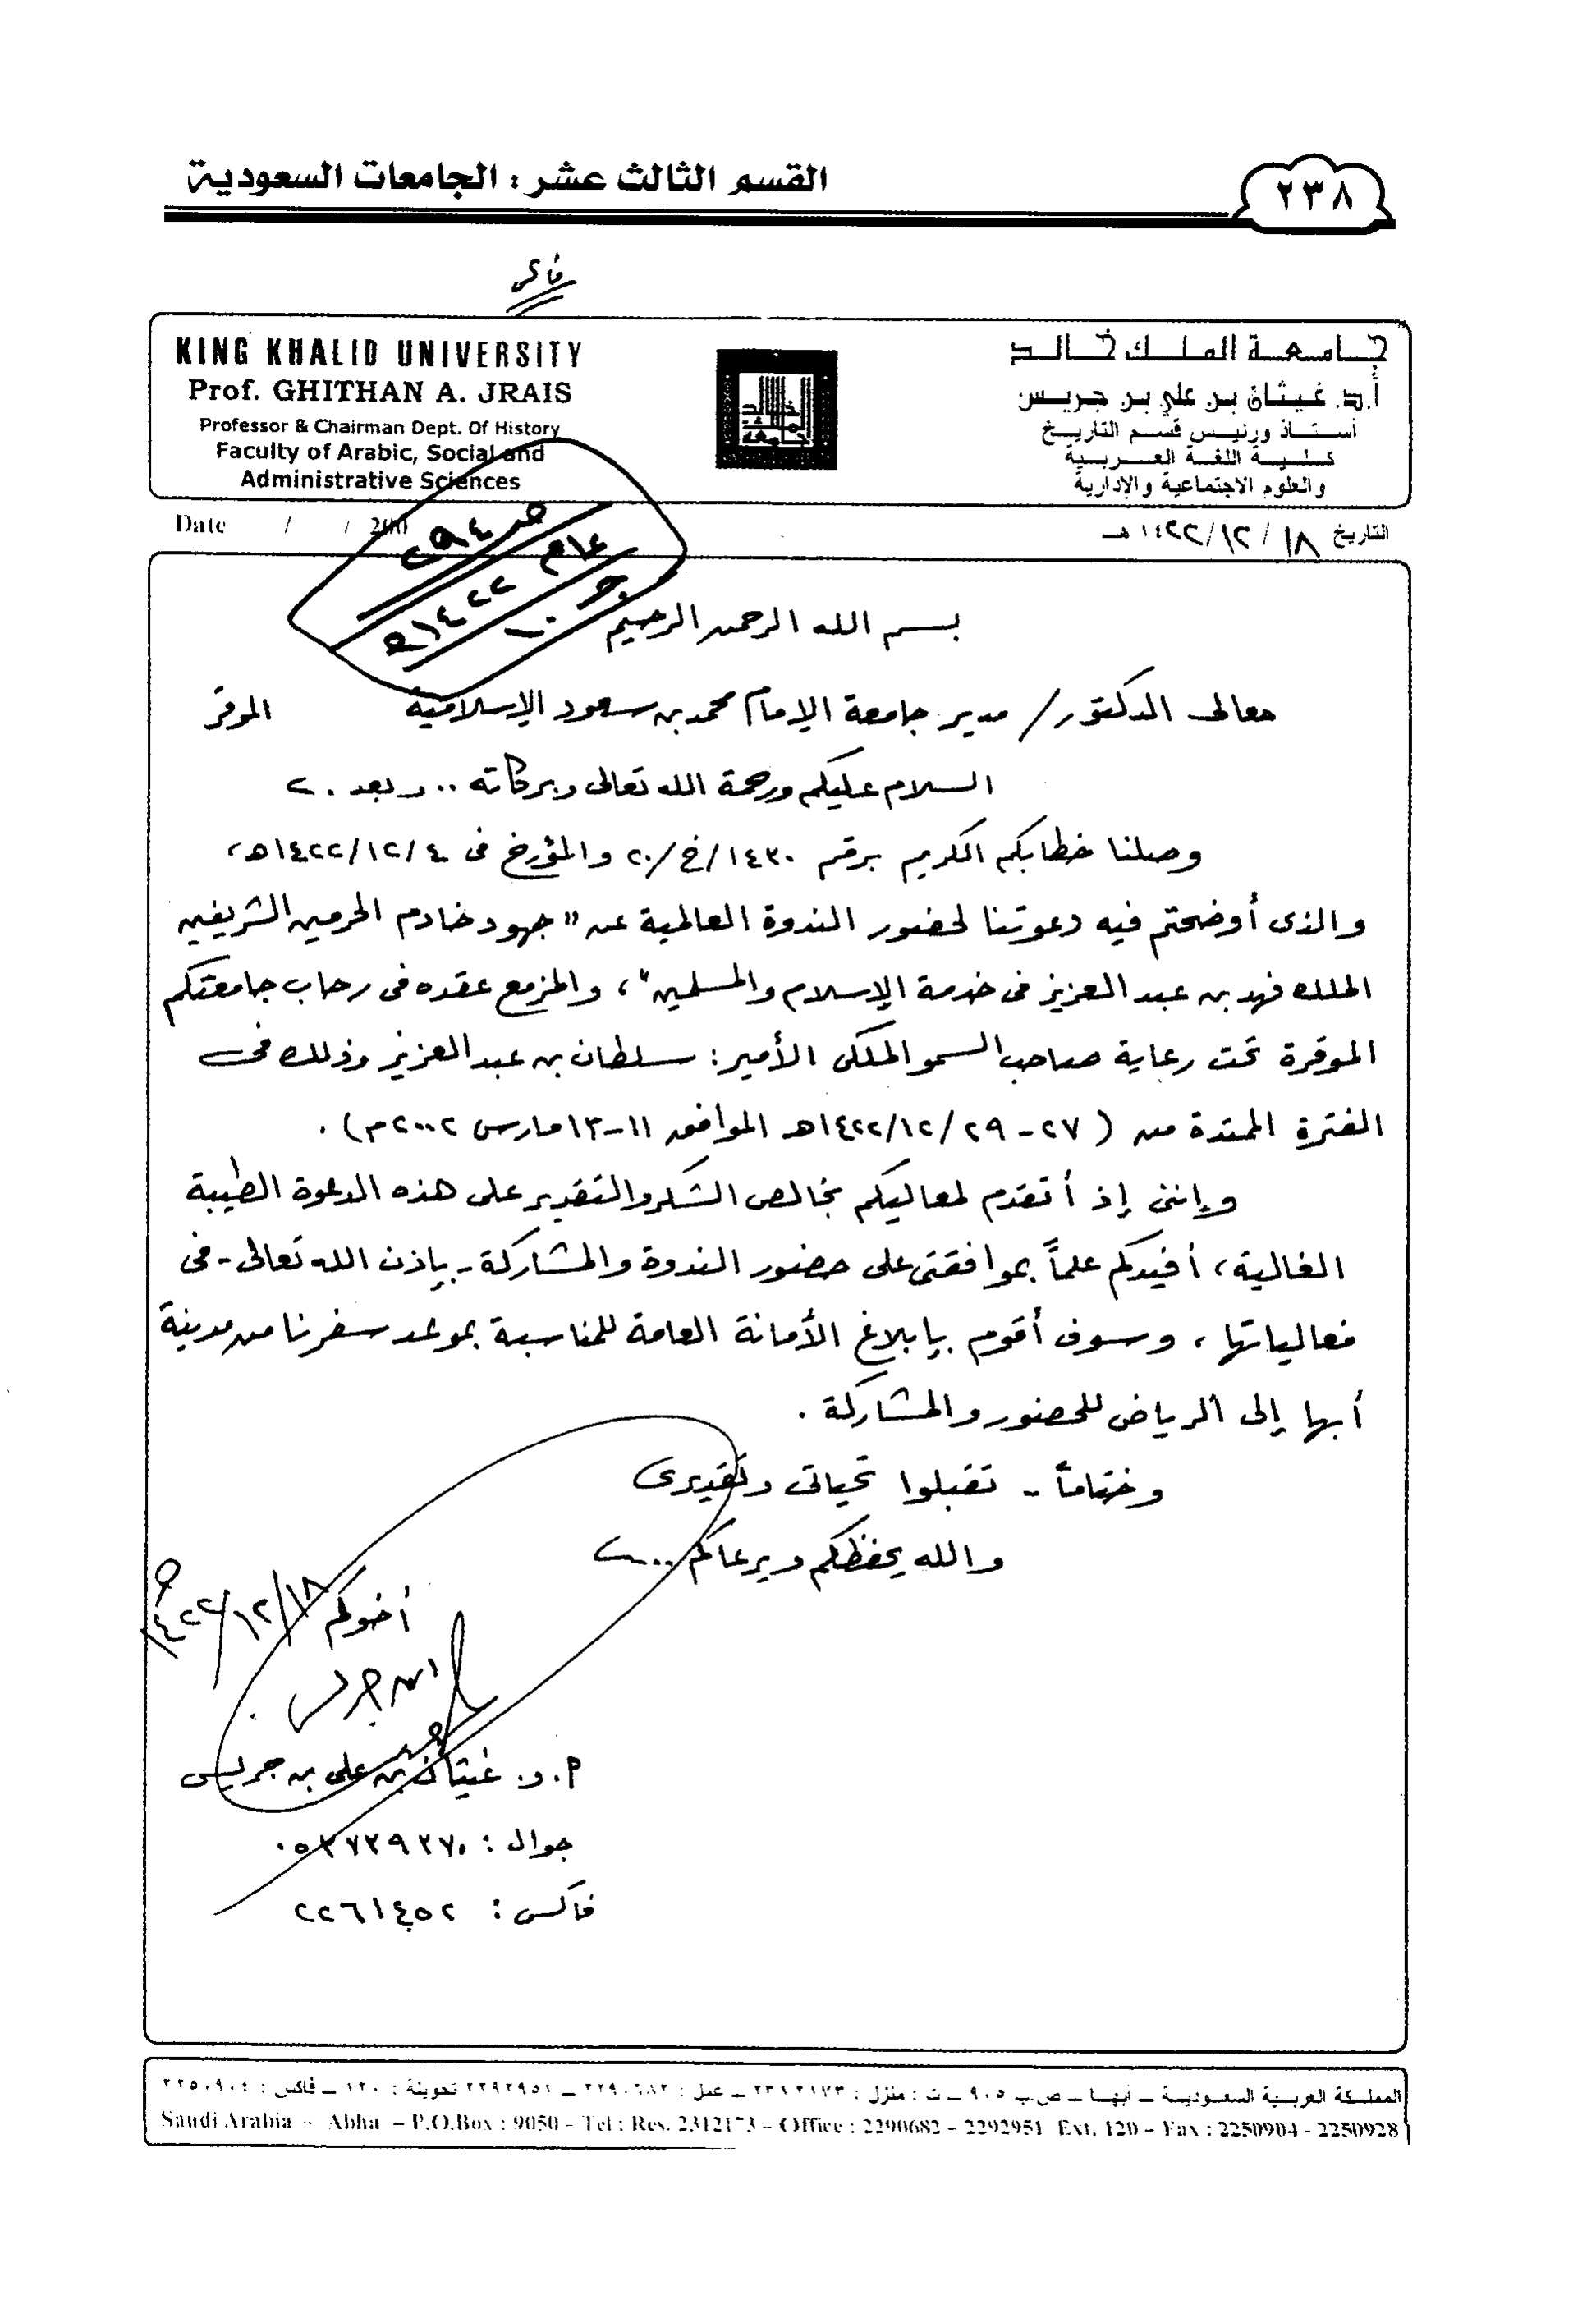 القسم الثالث عشر : الجامعات السعودية
٢٣٨
فاكس
KING KHALID UNIVERSITY
Prof. GHITHAN A. JRAIS
Professor & Chairman Dept. Of History
Faculty of Arabic, Social and
Administrative Sciences
جامعة الملك خالد
أ.د. غيثان بن علي بن جريس
أستاذ ورئيس قسم التاريخ
كلية اللغة العربية
والعلوم الاجتماعية والإدارية
Date / / 200
التاريخ ١٨ / ١٢ / ١٤٢٢ هـ
عام
١٤٢٢هـ
بسم الله الرحمن الرحيم
معالى الدكتور / مدير جامعة الإمام محمد بن سعود الإسلامية الموقر
السلام عليكم ورحمة الله تعالى وبركاته .. وبعد ..
وصلنا خطابكم الكريم برقم ١٤٣٠/خ/٢٠ والمؤرخ فى ١٤٢٢/١٢/٤هـ،
والذى أوضحتم فيه دعوتنا لحضور الندوة العالمية عن "جهود خادم الحرمين الشريفين
الملك فهد بن عبد العزيز فى خدمة الإسلام والمسلمين"، والمزمع عقده فى رحاب جامعتكم
الموقرة تحت رعاية صاحب السمو الملكى الأمير: سلطان بن عبد العزيز وذلك فى
الفترة الممتدة من (٢٧ - ١٤٢٢/١٢/٢٩هـ الموافق ١١-١٣ مارس ٢٠٠٢م) .
وإننى إذ أتقدم لمعاليكم بخالص الشكر والتقدير على هذه الدعوة الطيبة
الغالية، أفيدكم علماً بموافقتى على حضور الندوة والمشاركة - بإذن الله تعالى - فى
فعالياتها، وسوف أقوم بإبلاغ الأمانة العامة للمناسبة بموعد سفرنا من مدينة
أبها إلى الرياض للحضور والمشاركة .
وختاماً - تقبلوا تحياتى وتقديرى
والله يحفظكم ويرعاكم ...
أخوكم
١٤٢٢/١٢/١٨هـ
ابن جريس
أ.د. غيثان بن على بن جريس
جوال : ٠٥٣٧٢٩٣٧٠
فاكس : ٢٢٦١٤٥٢
المملكة العربية السعودية – أبها – ص.ب ٩٠٥ – ت : منزل : ٢٣١٢١٧٣ – عمل : ٢٢٩٠٦٨٢ – ٢٢٩٢٩٥١ تحويلة : ١٢٠ – فاكس : ٢٢٥٠٩٠٤
Saudi Arabia – Abha – P.O.Box : 9050 – Tel : Res. 2312173 – Office : 2290682 – 2292951 Ext. 120 – Fax : 2250904 - 2250928